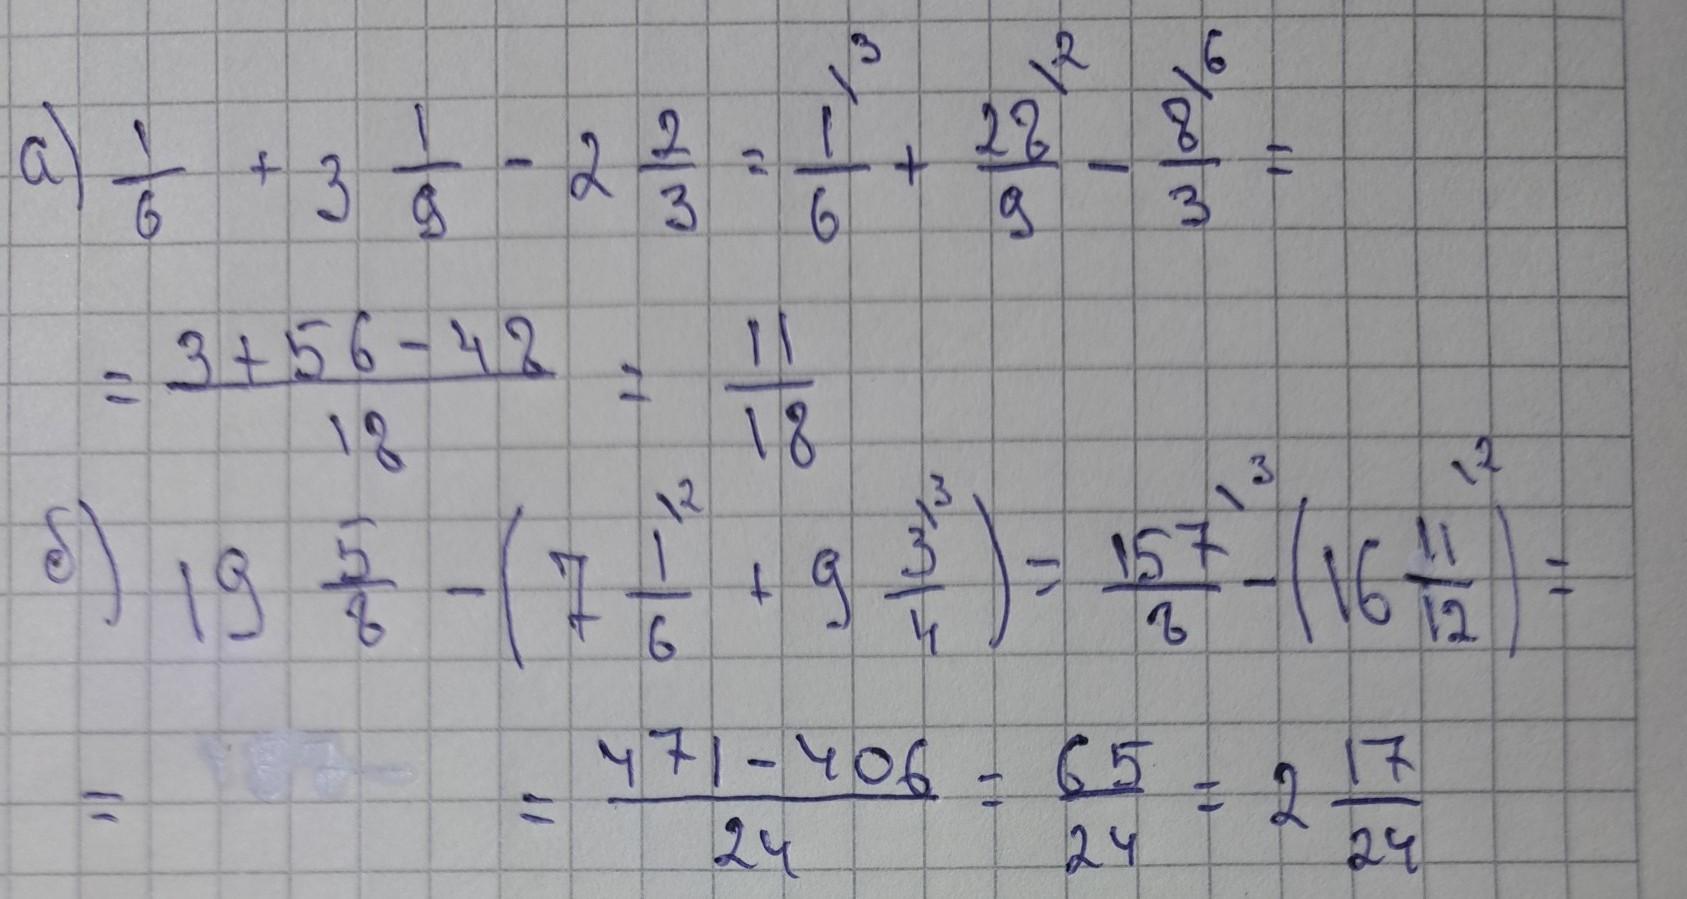 а) 1/6 + 3 1/9 - 2 2/3 = 1\3/6 + 28\2/9 - 8\6/3 =
= 3+56-48/18 = 11/18
б) 19 5/8 - (7 1\2/6 + 9 3\3/4) = 157\3/8 - (16 11\2/12) =
= = 471-406/24 = 65/24 = 2 17/24